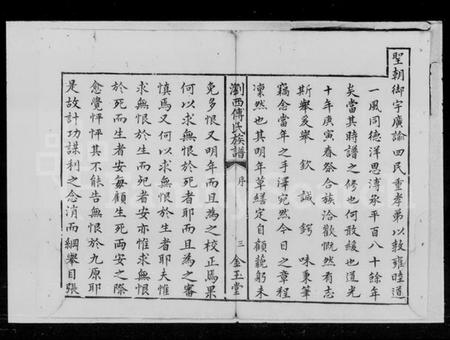 聖朝御宇廣諭四民重孝弟以敦雍睦道
一風同德洋恩溥承平百八十餘年
矣當其時譜之修也何敢緩也道光
十年庚寅春祭合族洽歡慨然有志
斯舉爰舉欽誠鍔味秉筆
竊念當年之手澤宛然今日之章程
凜然也其明年草繕定自顧藐躬未
瀏西傅氏族譜 序 三 金玉堂
免多恨又明年而且為之校正焉果
何以求無恨於生者耶而且為之審
慎焉又何以求無恨於生者耶夫惟
求無恨於生而死者安亦惟求無恨
於死而生者安每顧生死兩安之際
愈覺怦怦其不能告無恨於九原耶
是故計功謀利之念消而綱舉目張